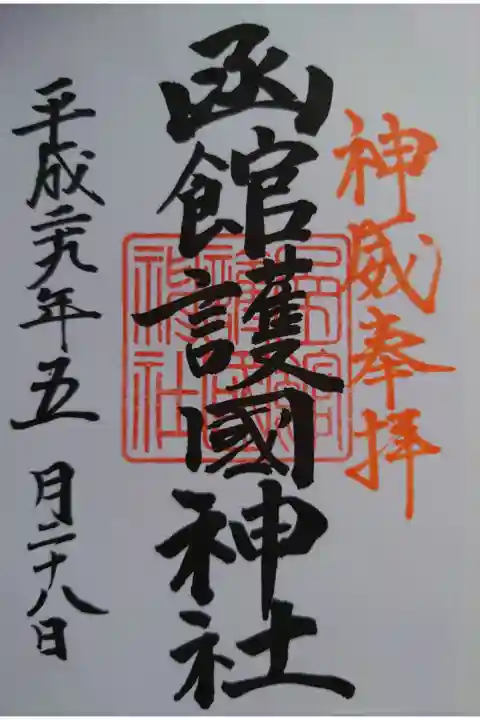 神威奉拝
函館護國神社
平成二十九年五月二十八日